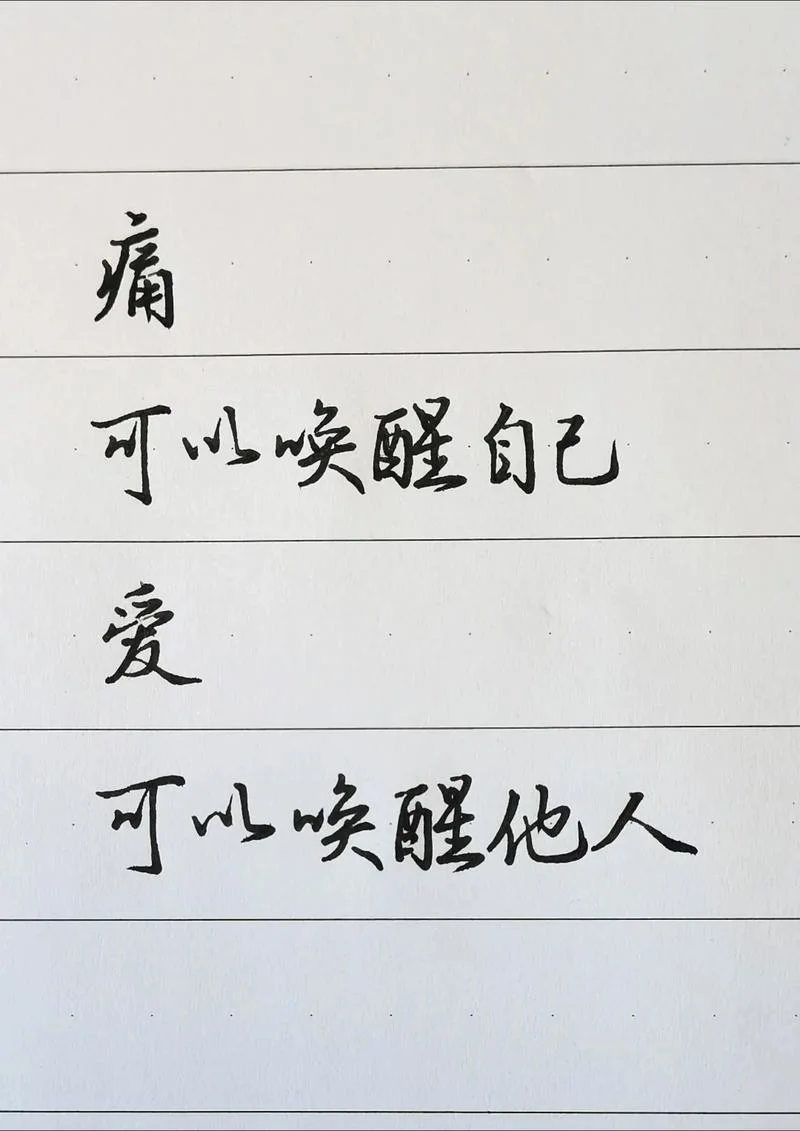 痛
可以唤醒自己
爱
可以唤醒他人